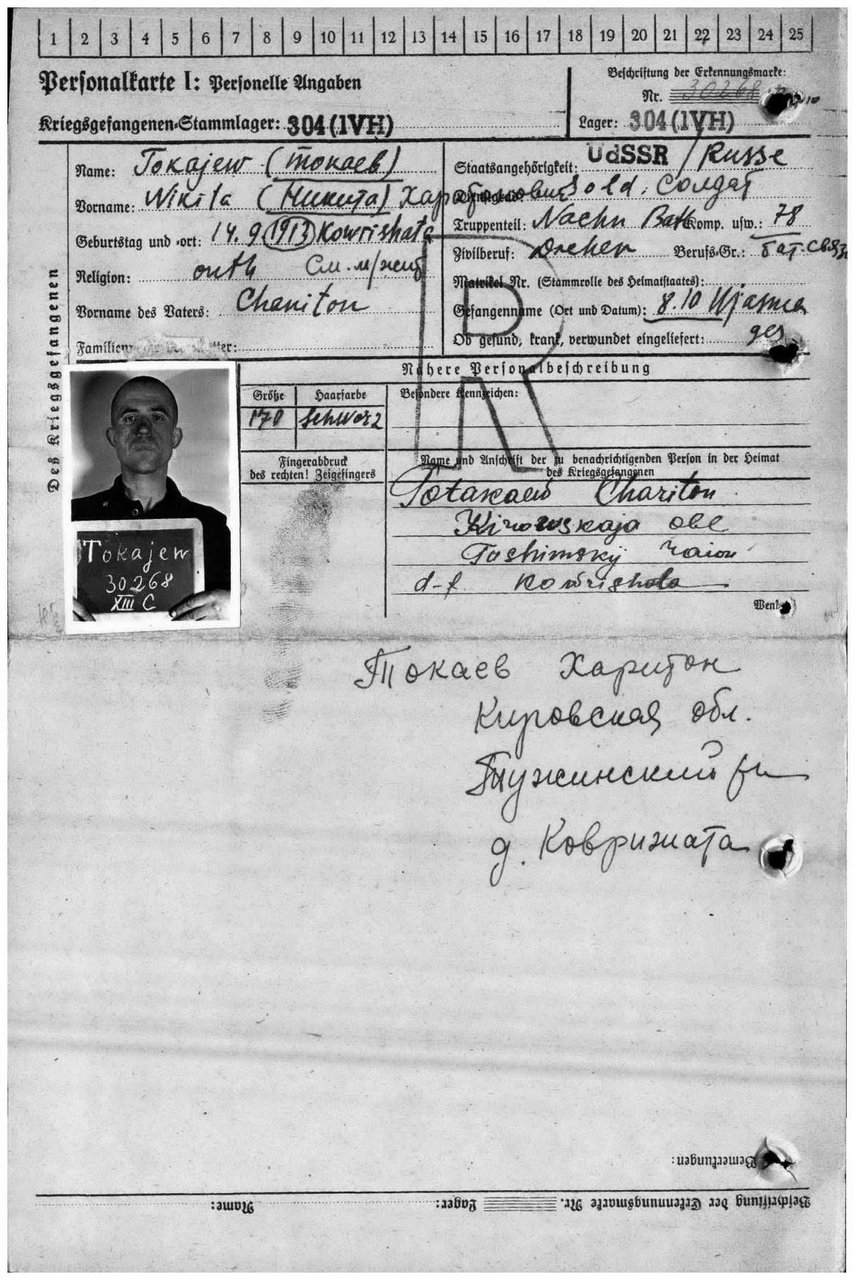 1 2 3 4 5 6 7 8 9 10 11 12 13 14 15 16 17 18 19 20 21 22 23 24 25
Personalkarte I: Personelle Angaben
Kriegsgefangenen-Stammlager: 304 (IVH)
Beschriftung der Erkennungsmarke:
Nr. 30268
Lager: 304 (IVH)
Des Kriegsgefangenen
Name: Tokajew (Токаев)
Vorname: Nikita (Никита) Харитонович
Geburtstag und -ort: 14.9.1913 Kowrishata
Religion: orth См. м/жит
Vorname des Vaters: Chariton
Familienname der Mutter:
Staatsangehörigkeit: UdSSR / Russe
Dienstgrad: Sold. Солдат
Truppenteil: Nachr Batl Komp. usw.: 78
Zivilberuf: Dreher Berufs-Gr.: бат. связи
Matrikel Nr. (Stammrolle des Heimatstaates):
Gefangennahme (Ort und Datum): 8.10 Wjasma
Ob gesund, krank, verwundet eingeliefert: ges
Nähere Personalbeschreibung
Größe Haarfarbe Besondere Kennzeichen:
170 schwarz
Fingerabdruck
des rechten! Zeigefingers
Name und Anschrift der zu benachrichtigenden Person in der Heimat
des Kriegsgefangenen
Totakaew Chariton
Kirowskaja obl
Toshimskij raion
d-f Kowrishata
Wenden
Tokajew
30268
XIII C
Токаев Харитон
Кировская обл.
Тужинский рн
д. Коврижата
Bemerkungen:
Beschriftung der Erkennungsmarke Nr. Lager: Name: